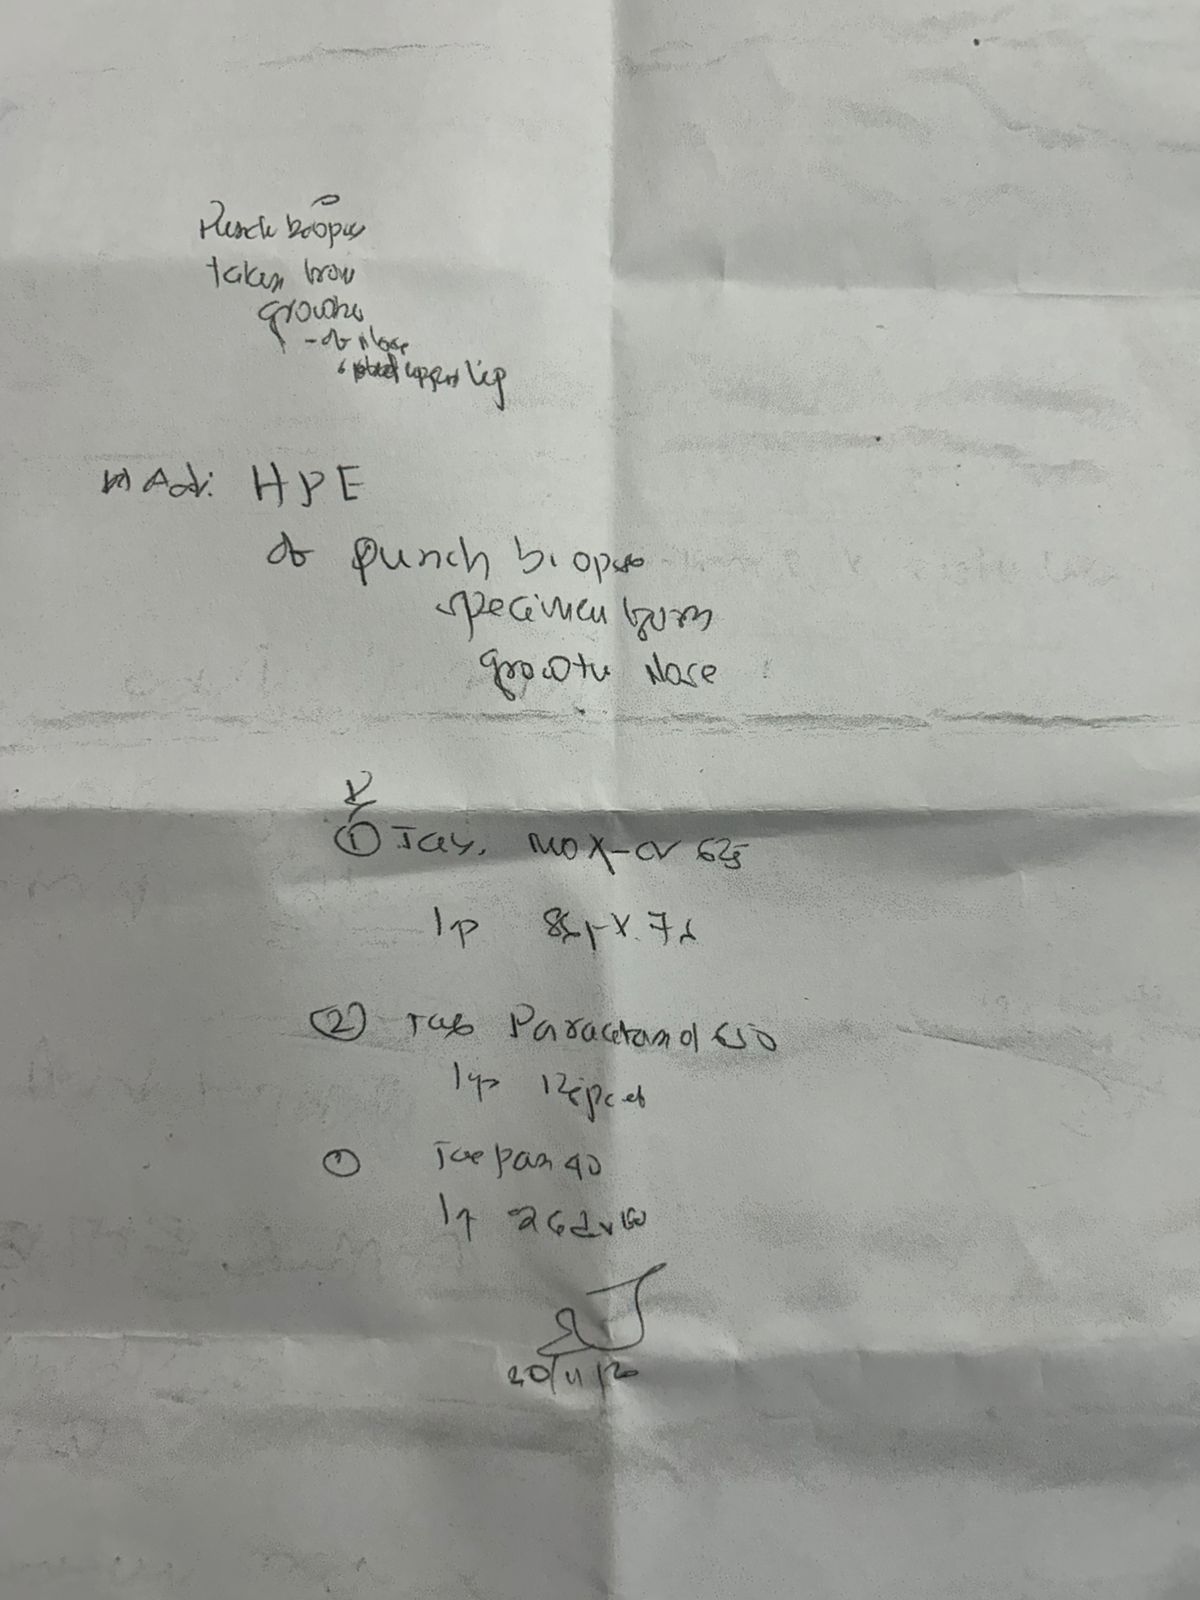 Punch biopsy
taken from
growth
- of Nose
upper lip
Adv: HPE
of punch biopsy
specimen from
growth Nose
① Tab. MOX-CV 625
1p x 7d
② Tab Paracetamol 650
1p
Tab pan 40
1p
20/11/20